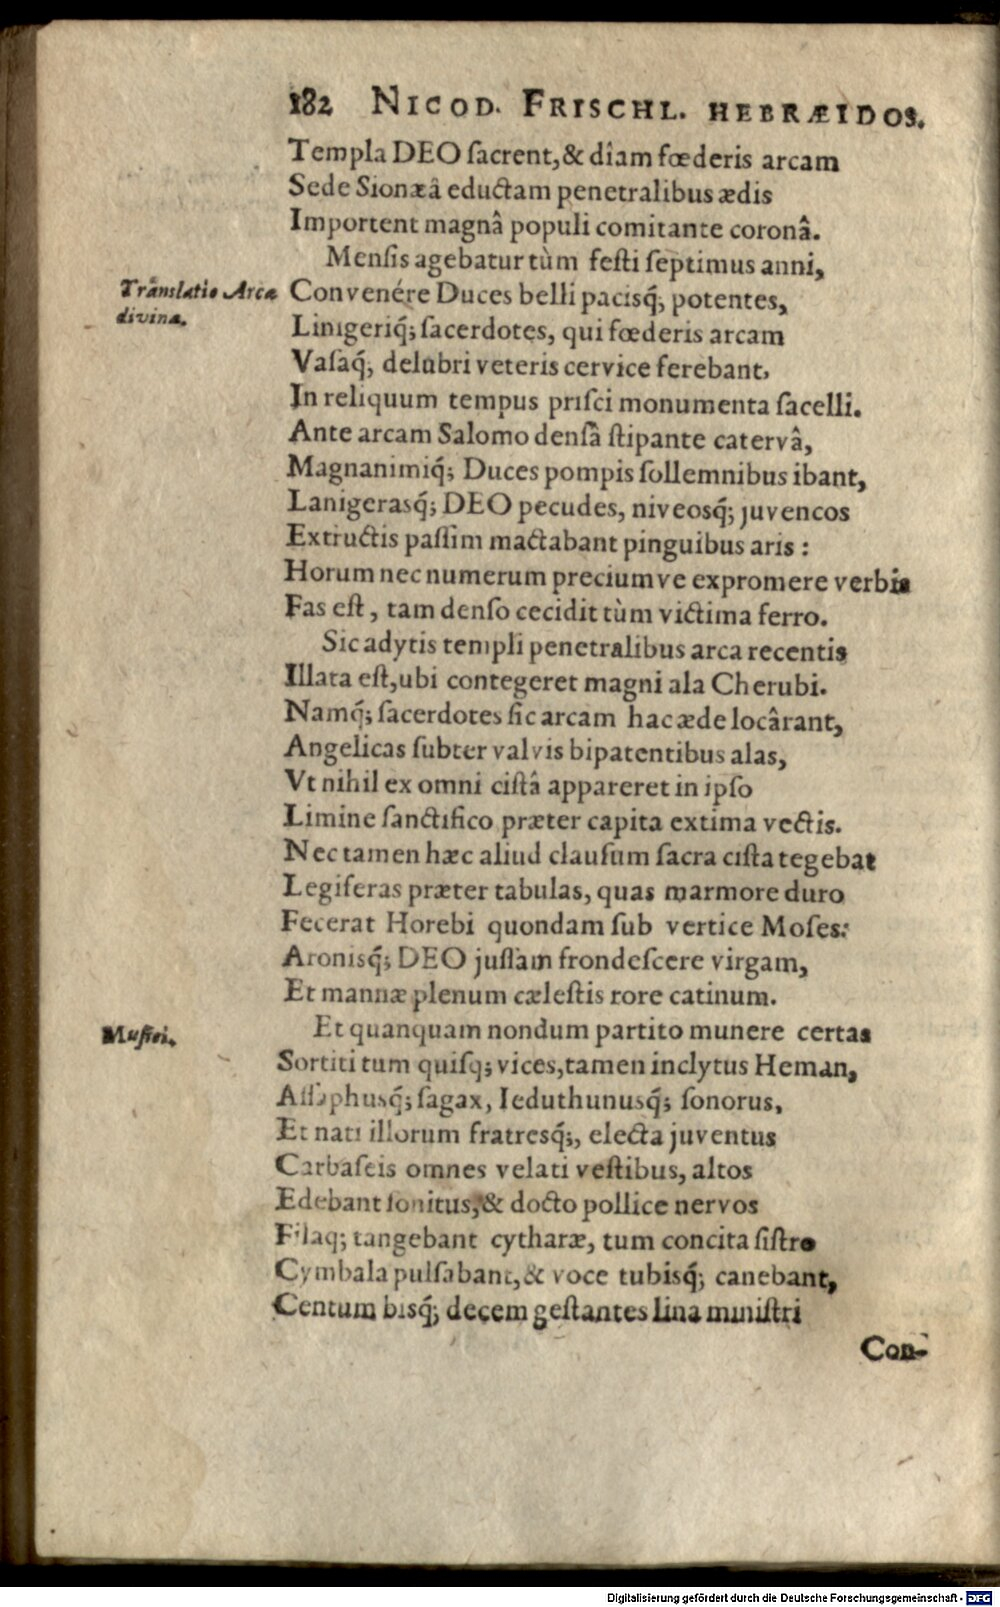 182 NICOD. FRISCHL. HEBRÆIDOS.
Templa DEO ſacrent, & dîam fœderis arcam
Sede Sionæâ eductam penetralibus ædis
Importent magnâ populi comitante coronâ.
Menſis agebatur tùm feſti ſeptimus anni,
Translatio Arcæ
divinæ.
Convenére Duces belli pacisq́; potentes,
Linigeriq́; ſacerdotes, qui fœderis arcam
Vaſaq́; delubri veteris cervice ferebant,
In reliquum tempus priſci monumenta ſacelli.
Ante arcam Salomo denſâ ſtipante catervâ,
Magnanimiq́; Duces pompis ſollemnibus ibant,
Lanigerasq́; DEO pecudes, niveosq́; juvencos
Extructis paſſim mactabant pinguibus aris:
Horum nec numerum preciumve expromere verbis
Fas eſt, tam denſo cecidit tùm victima ferro.
Sic adytis templi penetralibus arca recentis
Illata eſt, ubi contegeret magni ala Cherubi.
Namq́; ſacerdotes ſic arcam hac æde locârant,
Angelicas ſubter valvis bipatentibus alas,
Vt nihil ex omni ciſtâ appareret in ipſo
Limine ſanctifico præter capita extima vectis.
Nec tamen hæc aliud clauſum ſacra ciſta tegebat
Legiferas præter tabulas, quas marmore duro
Fecerat Horebi quondam ſub vertice Moſes:
Aronisq́; DEO juſſam frondeſcere virgam,
Et mannæ plenum cæleſtis rore catinum.
Muſici.
Et quanquam nondum partito munere certas
Sortiti tum quiſq; vices, tamen inclytus Heman,
Aſſaphusq́; ſagax, Ieduthunusq́; ſonorus,
Et nati illorum fratresq́;, electa juventus
Carbaſeis omnes velati veſtibus, altos
Edebant ſonitus, & docto pollice nervos
Filaq; tangebant cytharæ, tum concita ſiſtro
Cymbala pulſabant, & voce tubisq́; canebant,
Centum bisq́; decem geſtantes lina miniſtri
Con-
Digitalisierung gefördert durch die Deutsche Forschungsgemeinschaft - DFG